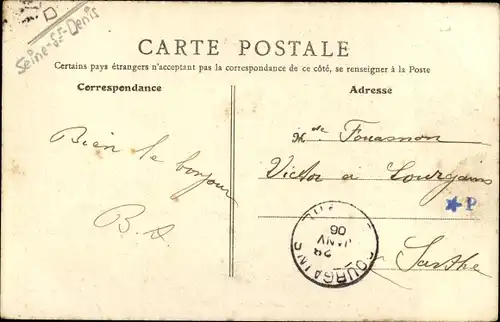 D
Seine-St-Denis
CARTE POSTALE
Certains pays étrangers n'acceptant pas la correspondance de ce côté, se renseigner à la Poste
Correspondance
Adresse
Bien le bonjour
B. A.
Victor à Courgains
★ P
Sarthe
COURGAINS
28
JANV
06